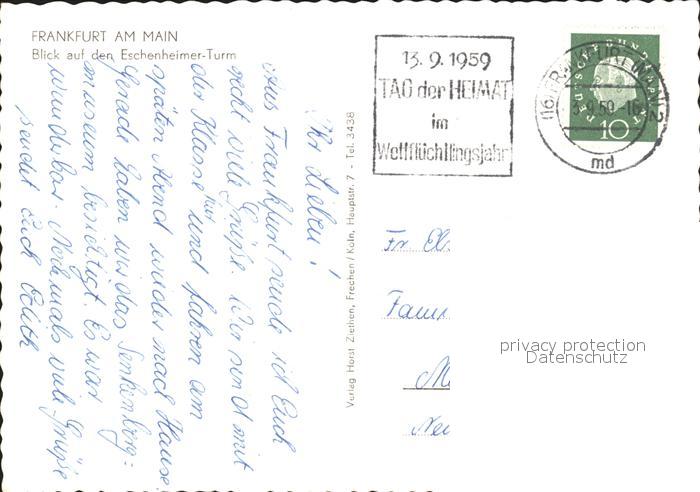 FRANKFURT AM MAIN
Blick auf den Eschenheimer-Turm
13. 9. 1959
TAG der HEIMAT
im
Weltflüchtlingsjahr
(16) FRANKFURT (MAIN) 2
-9.59-16
md
DEUTSCHE BUNDESPOST
10
Verlag Horst Ziethen, Frechen / Köln, Hauptstr. 7 - Tel. 3438
Ihr Lieben!
Aus Frankfurt sende ich Euch
recht viele Grüße. Wir sind mit
der Klasse hier und fahren am
späten Abend wieder nach Hause
Gerade haben wir das Senkenberg-
museum besichtigt. Es war
wunderbar. Nochmals viele Grüße
sendet Euch Edith
Fr.
Fam
M
Neu
privacy protection
Datenschutz